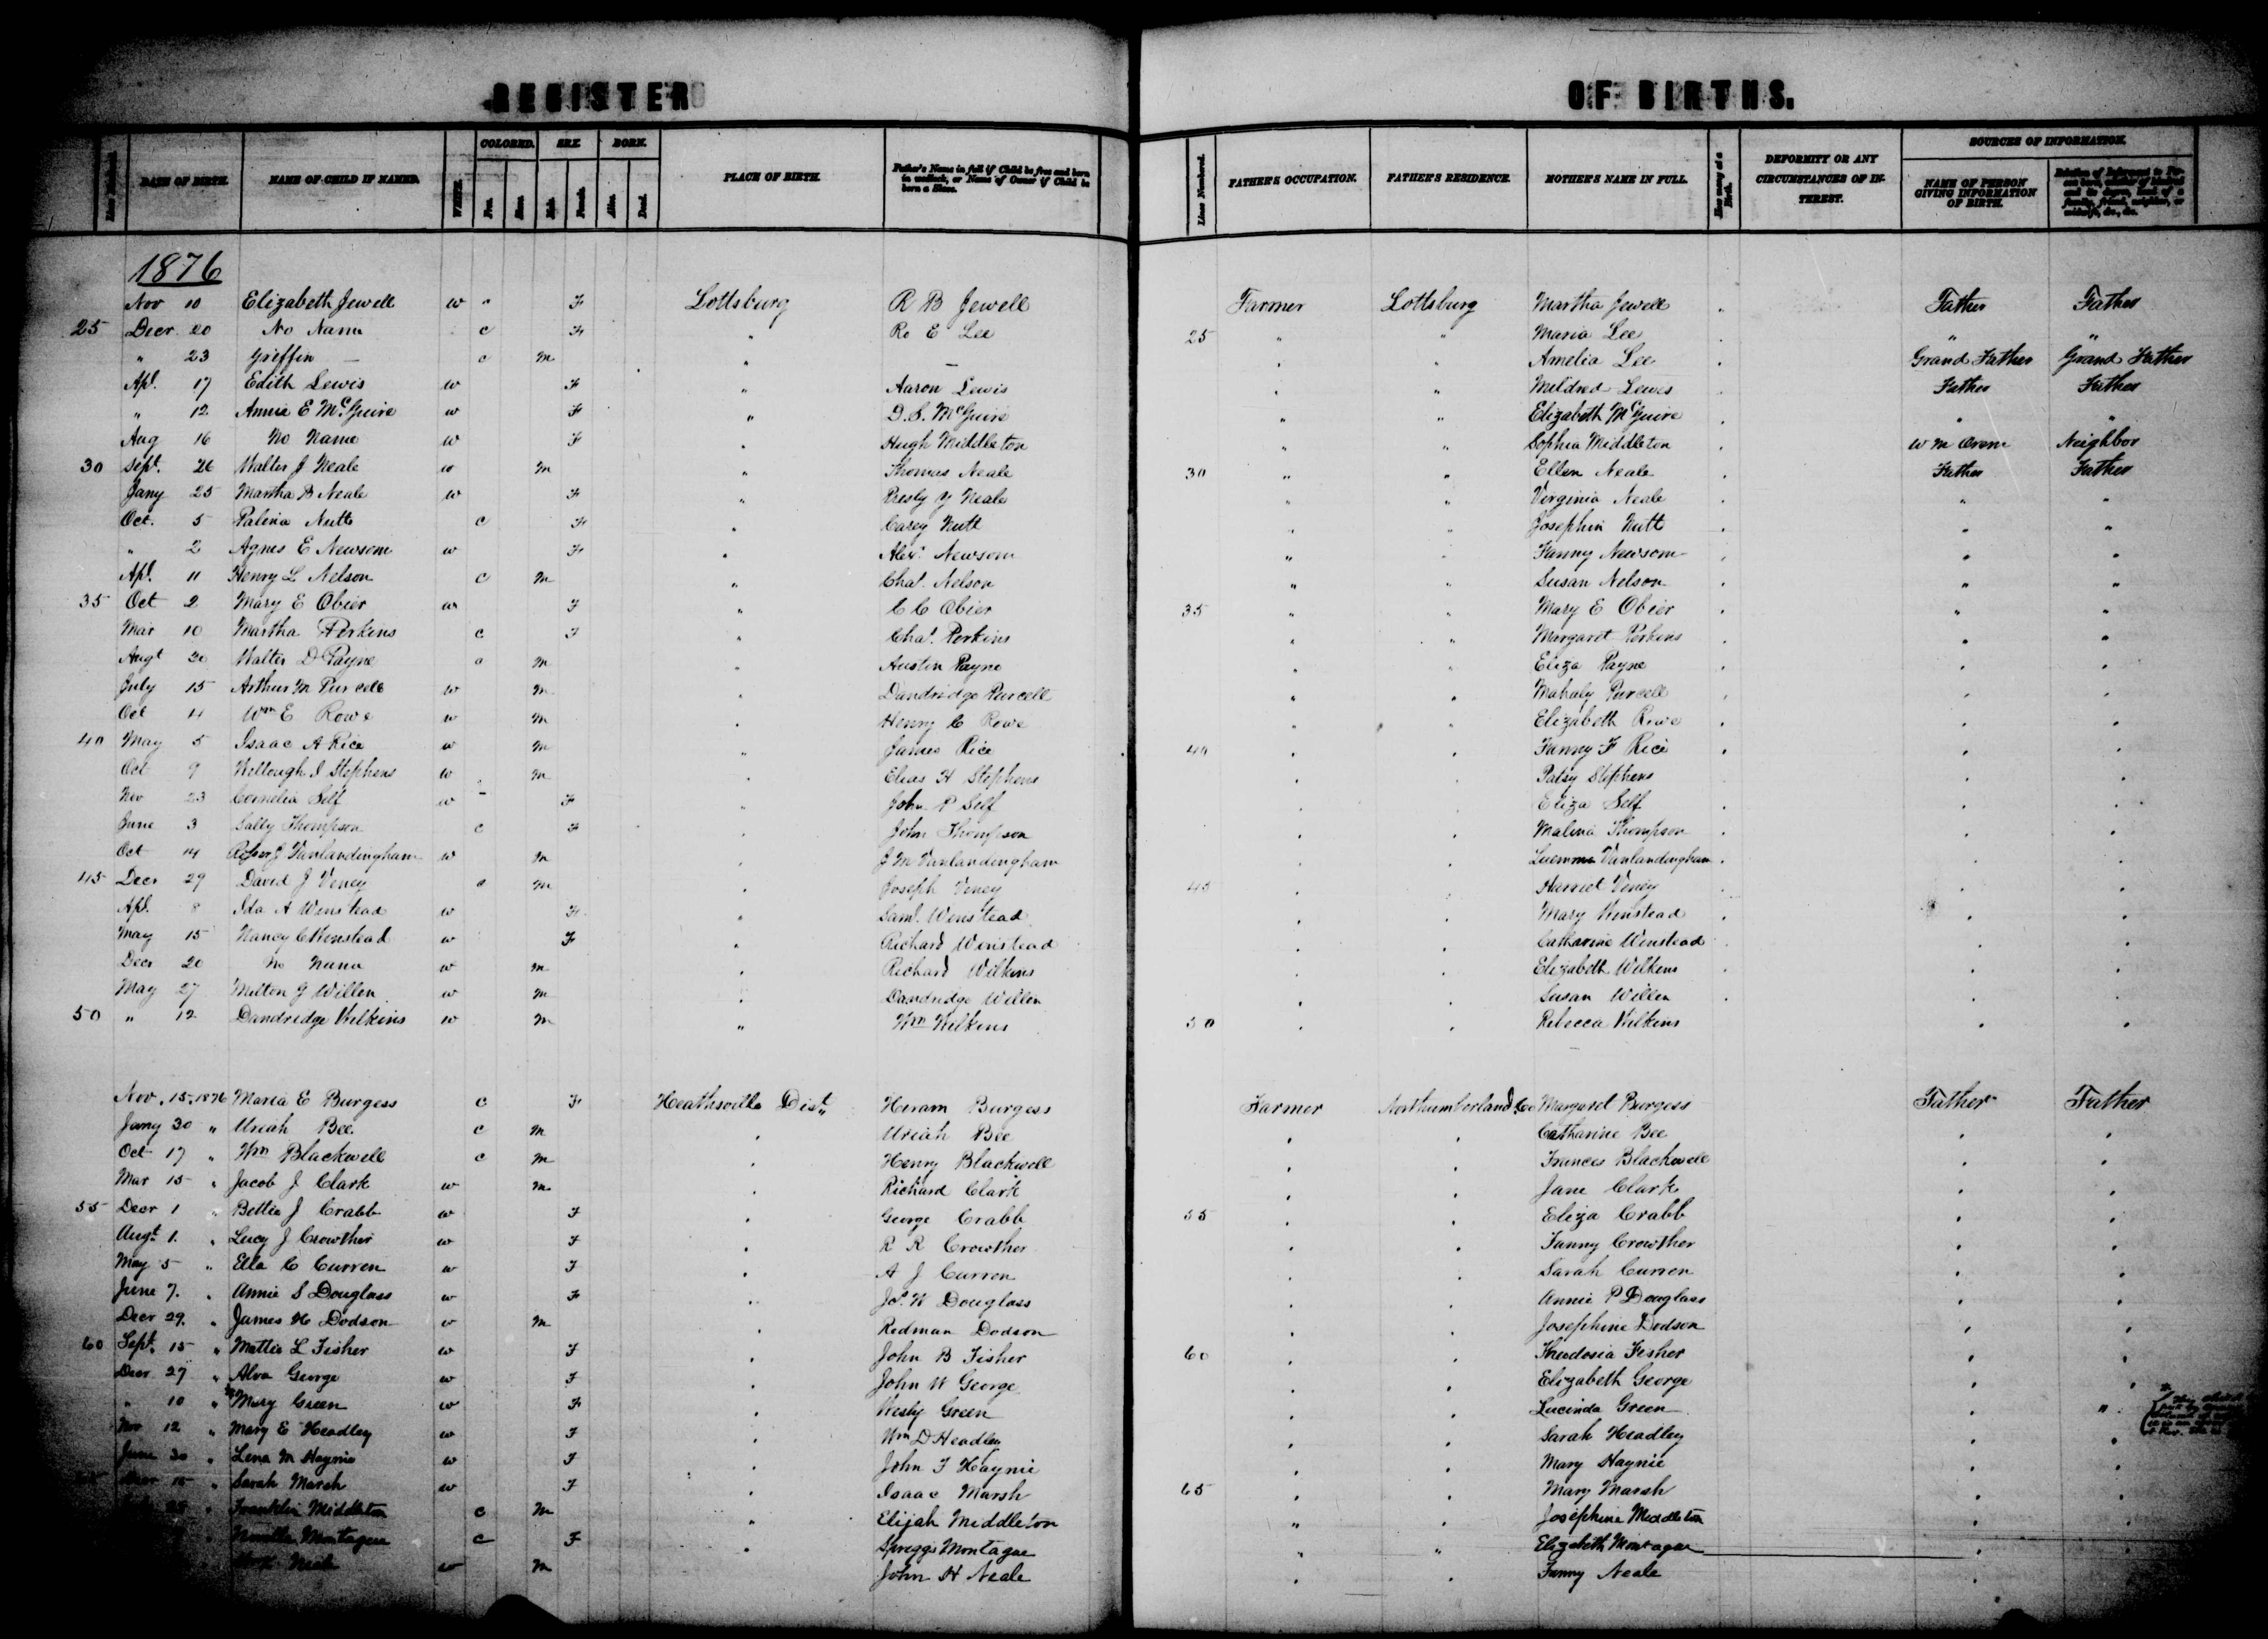 REGISTER OF BIRTHS.
DATE OF BIRTH. NAME OF CHILD IF NAMED. WHITE. COLORED. Free. Slave. SEX. Male. Female. BORN. Alive. Dead. PLACE OF BIRTH. Father's Name in full if Child be free and born in wedlock, or Name of Owner if Child be born a Slave. Lines Numbered. FATHER'S OCCUPATION. FATHER'S RESIDENCE. MOTHER'S NAME IN FULL. DEFORMITY OR ANY CIRCUMSTANCES OF INTEREST. SOURCES OF INFORMATION. NAME OF PERSON GIVING INFORMATION OF BIRTH.
1876
Nov 10 Elizabeth Jewell w " F Lottsburg R B Jewell Farmer Lottsburg Martha Jewell Father Father
25 Decr 20 No Name c F " Ro E Lee 25 " " Maria Lee " "
" 23 Griffin — c m " — " " Amelia Lee Grand Father Grand Father
Apl. 17 Edith Lewis w F " Aaron Lewis " " Mildred Lewis Father Father
" 12 Annie E McGuire w F " D. S. McGuire " " Elizabeth McGuire " "
Aug 16 No Name w F " Hugh Middleton " " Sophia Middleton W M Neighbor
30 Sept. 26 Walter J Neale w m " Thomas Neale 30 " " Ellen Neale Father Father
Jany 25 Martha B Neale w F " Presly Y Neale " " Virginia Neale " "
Oct. 5 Palina Nutt c F " Carey Nutt " " Josephin Nutt " "
" 2 Agnes E Newsom w F " Alexr Newsom " " Fanny Newsom " "
Apl. 11 Henry L Nelson c m " Chas. Nelson " " Susan Nelson " "
35 Oct 2 Mary E Obier w F " C C Obier 35 " " Mary E Obier " "
Mar 10 Martha Perkins c F " Chas. Perkins " " Margaret Perkins " "
Augt 20 Walter D Payne c m " Austin Payne " " Eliza Payne " "
July 15 Arthur M Purcell w m " Dandridge Purcell " " Mahaly Purcell " "
Oct 11 Wm E Rowe w m " Henry C Rowe " " Elizabeth Rowe " "
40 May 5 Isaac A Rice w m " James Rice 40 " " Fanny F Rice " "
Oct 9 Stephens w m " Elias H Stephens " " Patsy Stephens " "
Nov 23 Cornelia Self w F " John P Self " " Eliza Self " "
June 3 Sally Thompson c F " John Thompson " " Malina Thompson " "
Oct 14 J Vanlandingham w m " J M Vanlandingham " " Luemma Vanlandingham " "
45 Decr 29 David J Veney c m " Joseph Veney 45 " " Harriet Veney " "
Apl. 8 Ida A Winstead w F " Saml. Winstead " " Mary Winstead " "
May 15 Nancy C Winstead w F " Richard Winstead " " Catharine Winstead " "
Decr 20 No Name w m " Richard Wilkins " " Elizabeth Wilkins " "
May 27 Milton J Willen w m " Dandridge Willen " " Susan Willen " "
50 " 12 Dandridge Wilkins w m " Wm Wilkins 50 " " Rebecca Wilkins " "
Nov. 15. 1876 Maria E Burgess c F Heathsville Dist. Hiram Burgess Farmer Northumberland Co Margaret Burgess Father Father
Jany 30 " Uriah Bee c m " Uriah Bee " " Catharine Bee " "
Oct 17 " Wm Blackwell c m " Henry Blackwell " " Frances Blackwell " "
Mar 15 " Jacob J Clark w m " Richard Clark " " Jane Clark " "
55 Decr 1 " Bettie J Crabb w F " George Crabb 55 " " Eliza Crabb " "
Augt. 1. " Lucy J Crowther w F " R R Crowther " " Fanny Crowther " "
May 5 " Ella C Curren w F " A J Curren " " Sarah Curren " "
June 7. " Annie S Douglass w F " Jos. W Douglass " " Annie P Douglass " "
Decr 29. " James H Dodson w m " Redman Dodson " " Josephine Dodson " "
60 Sept. 15 " Mattie L Fisher w F " John B Fisher 60 " " Theodosia Fisher " "
Decr 27 " Alva George w F " John W George " " Elizabeth George " "
" 10 " Mary Green w F " Wesly Green " " Lucinda Green " "
Nov 12 " Mary E Headley w F " Wm D Headley " " Sarah Headley " "
June 30 " Lena M Haynie w F " John F Haynie " " Mary Haynie " "
15 " Sarah Marsh w F " Isaac Marsh 65 " " Mary Marsh " "
25 " Franklin Middleton c m " Elijah Middleton " " Josephine Middleton " "
Montague c F " Spriggs Montague " " Elizabeth Montague " "
Neale w m John H Neale " " Fanny Neale "